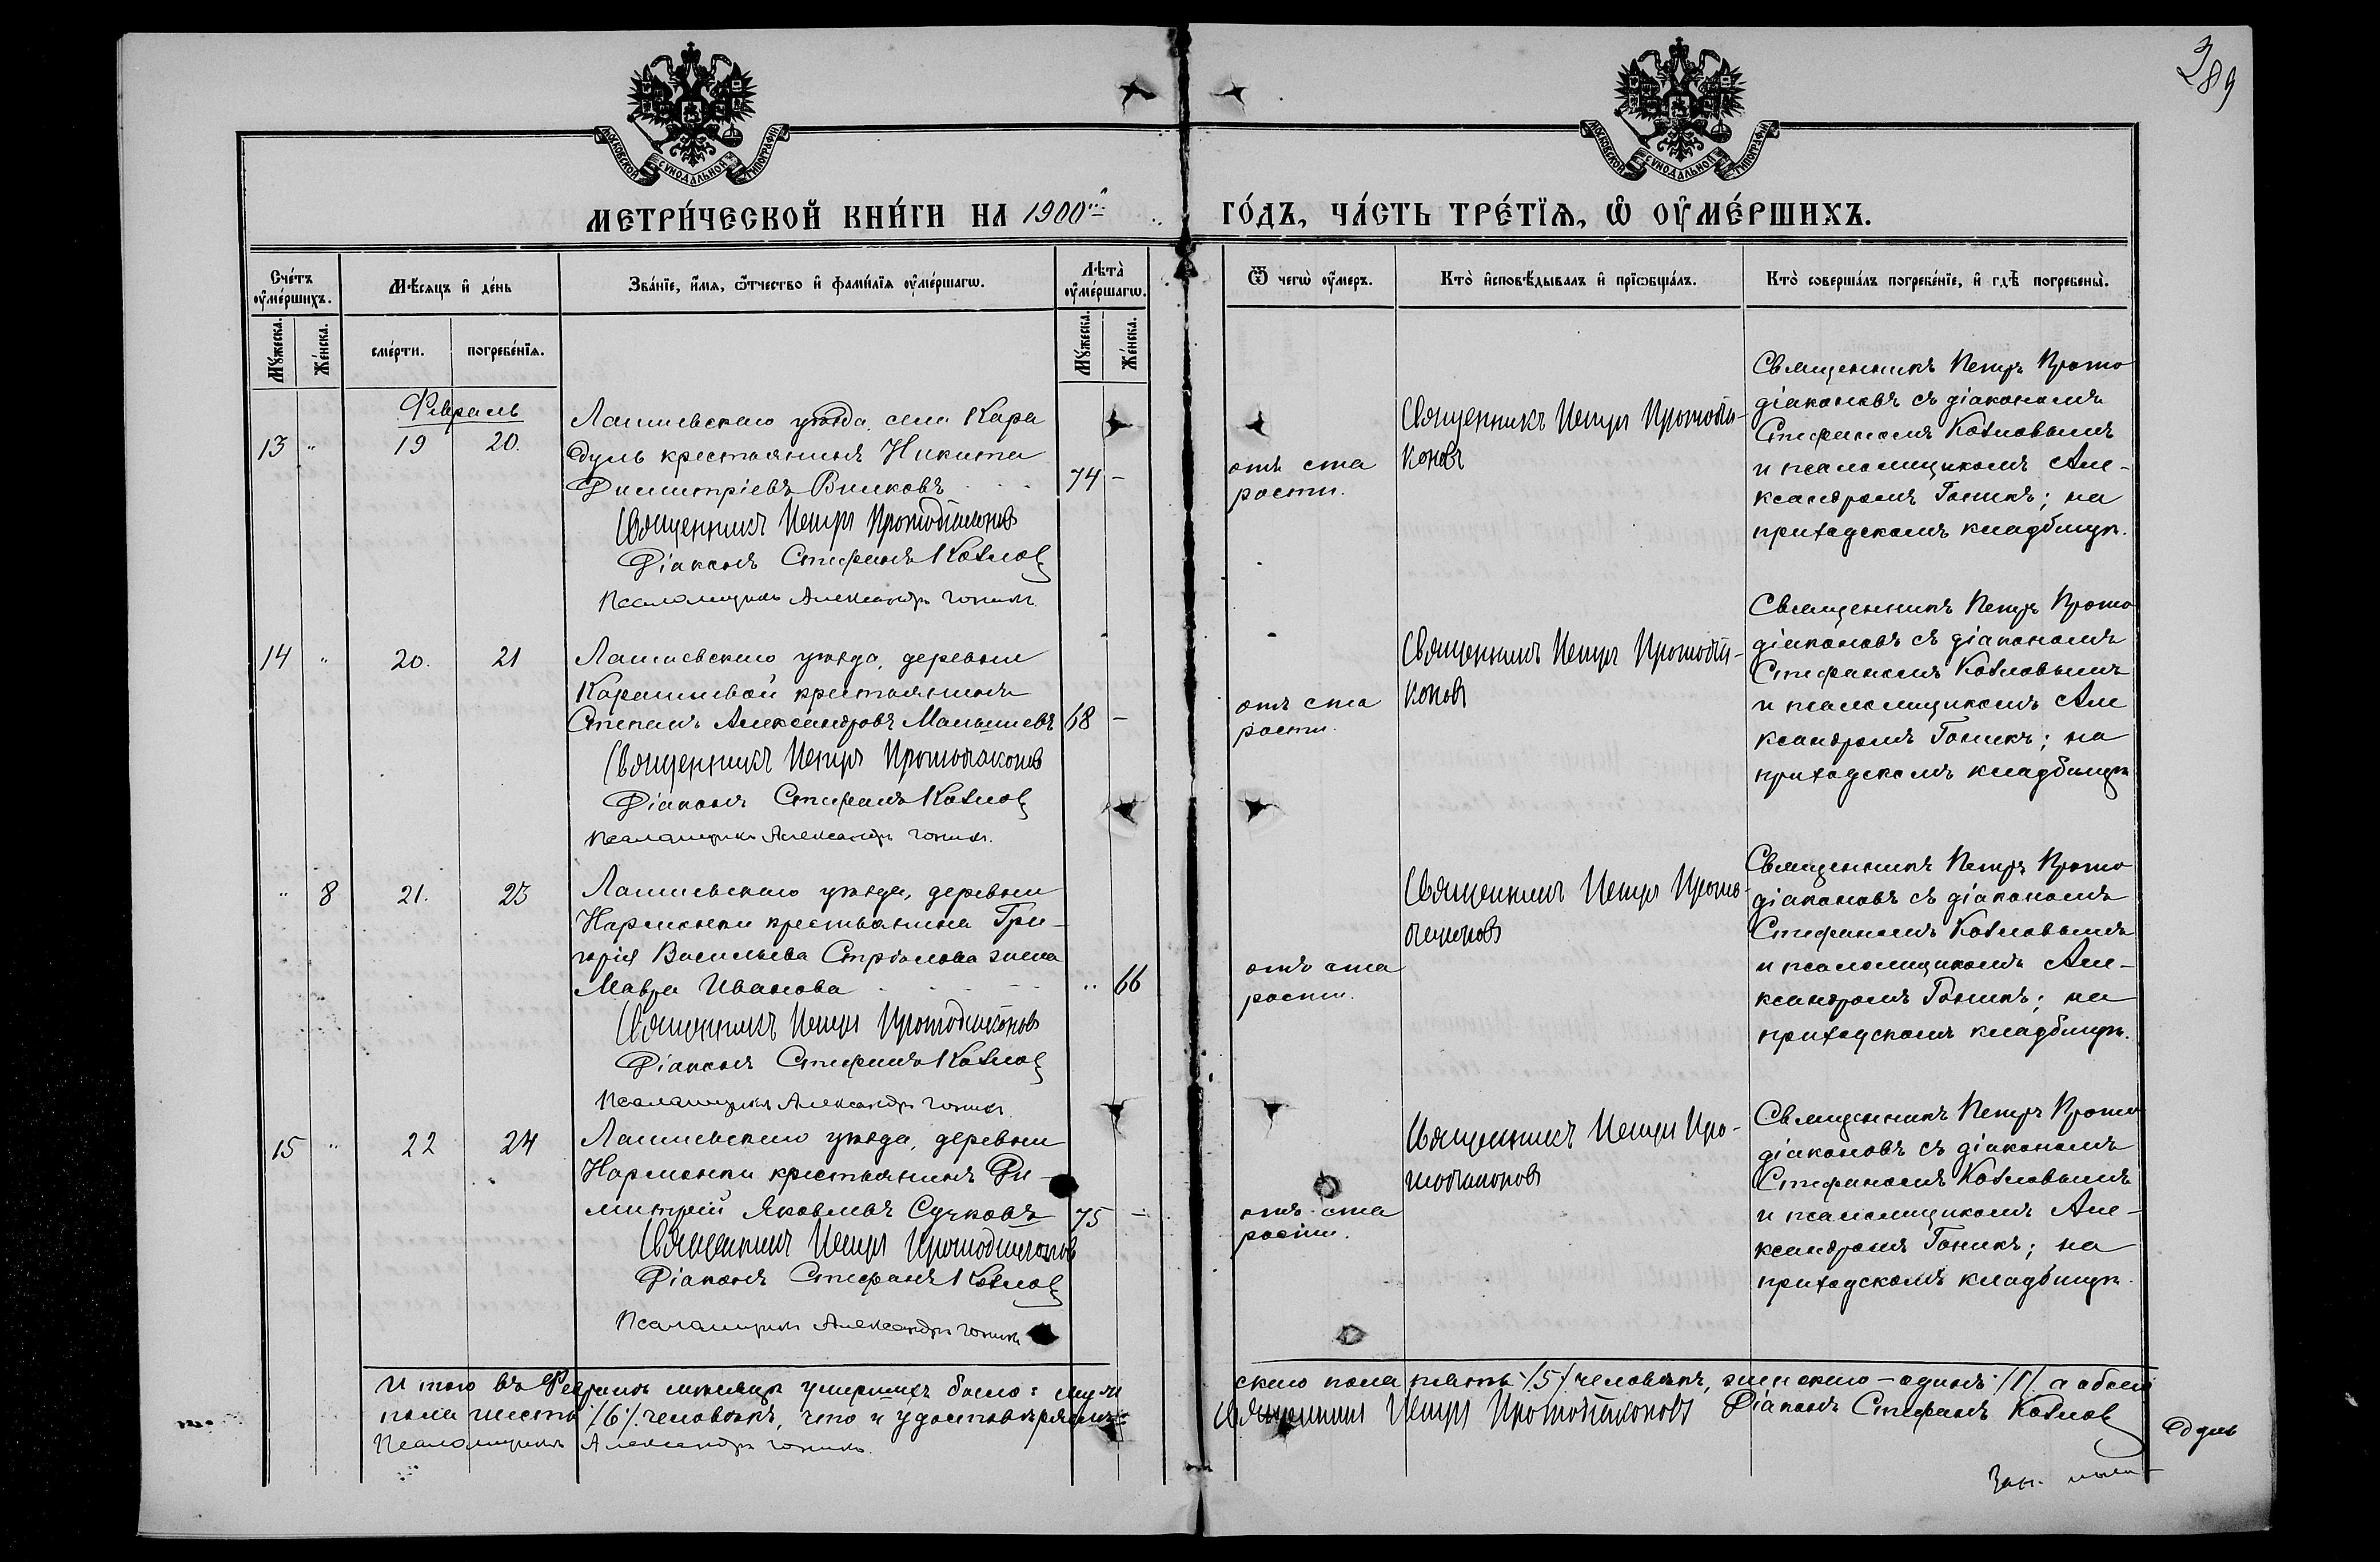 389
МОСКОВСКОЙ СУНОДАЛЬНОЙ ТИПОГРАФІИ
МОСКОВСКОЙ СУНОДАЛЬНОЙ ТИПОГРАФІИ
МЕТРИ́ЧЕСКОЙ КНИ́ГИ НА 1900й ГО́ДЪ, ЧА́СТЬ ТРЕ́ТЇѦ, Ѡ҆ ОУ҆МЕ́РШИХЪ.
Сче́тъ оу҆ме́ршихъ.
Мꙋ́жеска.
Же́нска.
Мѣ́сѧцъ и҆ де́нь
сме́рти.
погребе́нїѧ.
Зва́нїе, и҆́мѧ, ѻ҆́тчество и҆ фами́лїѧ оу҆ме́ршагѡ.
Лѣта̀ оу҆ме́ршагѡ.
Мꙋ́жеска.
Же́нска.
Ѿ чегѡ̀ оу҆́меръ.
Кто̀ и҆сповѣ́дывалъ и҆ прїѡбща́лъ.
Кто̀ соверша́лъ погребе́нїе, и҆ гдѣ̀ погребены̀.
Февраль
13 " 19 20.
Лаишевскаго уѣзда, села Кара
дуль крестьянинъ Никита
Димитріевъ Вилковъ 74 -
Священникъ Петръ Протодіаконовъ
Діаконъ Стефанъ Козлов
Псаломщикъ Александръ Гоникъ
отъ ста
рости.
Священникъ Петръ Протодіа-
коновъ
Священникъ Петръ Прото
діаконовъ съ діакономъ
Стефаномъ Козловымъ
и псаломщикомъ Але-
ксандромъ Гоникъ; на
приходскомъ кладбищѣ.
14 " 20. 21
Лаишевскаго уѣзда, деревни
крестьянинъ
Степанъ Александровъ Малышевъ 68 -
Священникъ Петръ Протодіаконовъ
Діаконъ Стефанъ Козлов
Псаломщикъ Александръ Гоникъ.
отъ ста
рости.
Священникъ Петръ Протодіа-
коновъ
Священникъ Петръ Прото
діаконовъ съ діакономъ
Стефаномъ Козловымъ
и псаломщикомъ Але
ксандромъ Гоникъ; на
приходскомъ кладбищѣ
" 8 21. 23
Лаишевскаго уѣзда, деревни
Нармонки крестьянина Гри-
горія Васильева жена
Мавра Иванова " 66
Священникъ Петръ Протодіаконовъ
Діаконъ Стефанъ Козлов
Псаломщикъ Александръ Гоникъ
отъ ста
рости.
Священникъ Петръ Прото-
діаконовъ
Священникъ Петръ Прото
діаконовъ съ діакономъ
Стефаномъ Козловымъ
и псаломщикомъ Але-
ксандромъ Гоникъ; на
приходскомъ кладбищѣ.
15 " 22 24
Лаишевскаго уѣзда, деревни
Нармонки крестьянинъ Ди-
митрій Яковлевъ Сучковъ 75 -
Священникъ Петръ Протодіаконовъ
Діаконъ Стефанъ Козлов
Псаломщикъ Александръ Гоникъ
отъ ста
рости.
Священникъ Петръ Про-
тодіаконовъ
Священникъ Петръ Прото
діаконовъ съ діакономъ
Стефаномъ Козловымъ
и псаломщикомъ Але-
ксандромъ Гоникъ; на
приходскомъ кладбищѣ.
И того въ Февралѣ мѣсяцѣ умершихъ было: муже
скаго пола пять /5/ человѣкъ, женскаго - одинъ /1/ а обоего
пола шесть /6/ человѣкъ, что и удостовѣряемъ:
Священникъ Петръ Протодіаконовъ Діаконъ Стефанъ Козлов
Псаломщикъ Александръ Гоникъ.